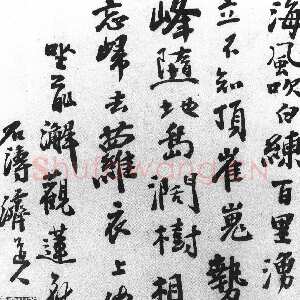 海風吹白練百里湧
立不知頂崔嵬勢
峰隨地島濶樹相
忘歸去蘿衣上
坐前澥觀蓮
石濤濟道人